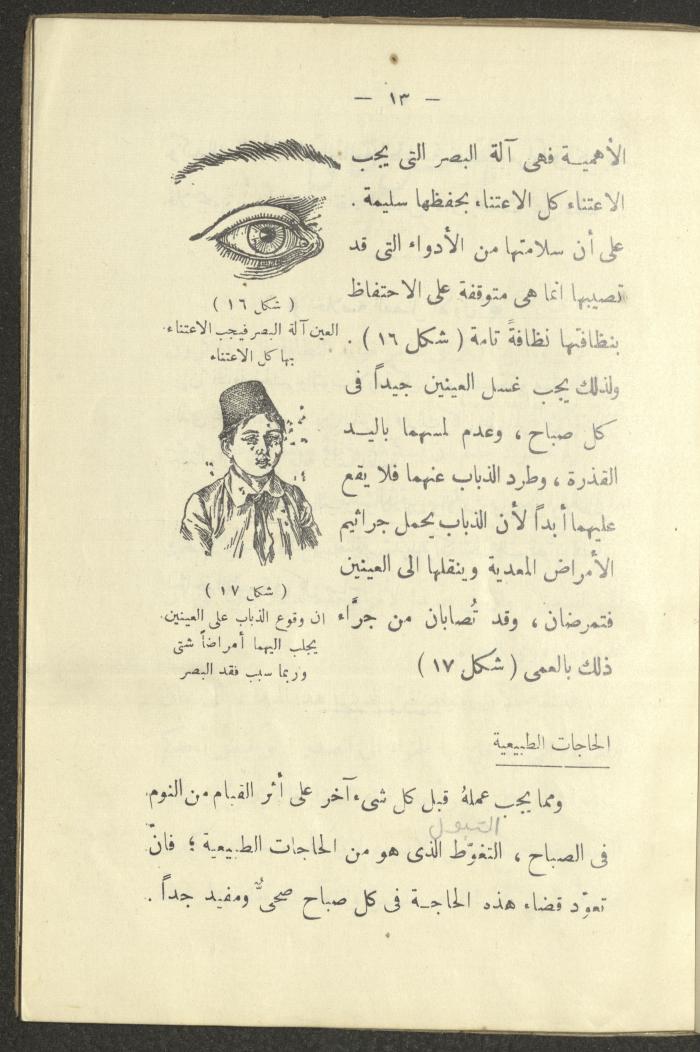 — ١٣ —
الأهمية فهى آلة البصر التى يجب
الاعتناء كل الاعتناء بحفظها سليمة .
على أن سلامتها من الأدواء التى قد
تصيبها انما هى متوقفة على الاحتفاظ
بنظافتها نظافةً تامة ( شكل ١٦ ) .
ولذلك يجب غسل العينين جيداً فى
كل صباح ، وعدم لمسهما باليد
القذرة ، وطرد الذباب عنهما فلا يقع
عليهما أبداً لأن الذباب يحمل جراثيم
الأمراض المعدية وينقلها الى العينين
فتمرضان ، وقد تُصابان من جرَّاء
ذلك بالعمى ( شكل ١٧ )
( شكل ١٦ )
العين آلة البصر فيجب الاعتناء
بها كل الاعتناء
( شكل ١٧ )
ان وقوع الذباب على العينين
يجلب اليهما أمراضاً شتى
وربما سبب فقد البصر
الحاجات الطبيعية
ومما يجب عملهُ قبل كل شىء آخر على أثر القيام من النوم
التبول
فى الصباح ، التغوّط الذى هو من الحاجات الطبيعية ؛ فانّ
تعوّد قضاء هذه الحاجة فى كل صباح صحىٌّ ومفيد جداً .